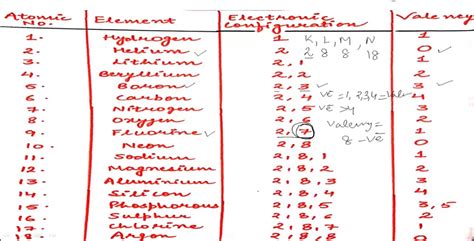 Atomic No. Element Electronic configuration Valency
1. Hydrogen 1 K, L, M, N 1
2. Helium 2, 2 8 8 18 0
3. Lithium 2, 1 1
4. Beryllium 2, 2 2
5. Boron 2, 3 3
6. Carbon 2, 4 4
7. Nitrogen 2, 5 VE >4 3
8. Oxygen 2, 6 Valency= 2
9. Fluorine 2, 7 8 -VE 1
10. Neon 2, 8 0
11. Sodium 2, 8, 1 1
12. Magnesium 2, 8, 2 2
13. Aluminium 2, 8, 3 3
14. Silicon 2, 8, 4 4
15. Phosphorous 2, 8, 5 3, 5
16. Sulphur 2, 8, 6 2
17. Chlorine 2, 8, 7 1
18. Argon 2, 8, 8 0